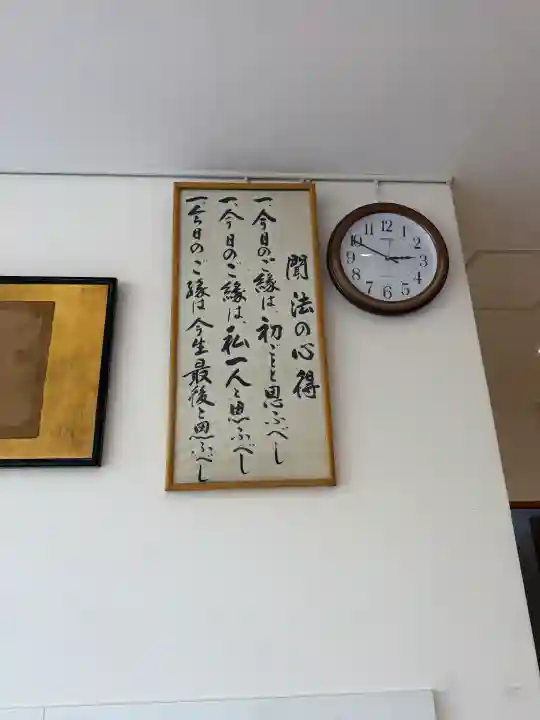 聞法の心得
一、今日のご縁は、初ごとと思ふべし
一、今日のご縁は、私一人と思ふべし
一、今日のご縁は今生最後と思ふべし
12
1
2
3
4
5
6
7
8
9
10
11